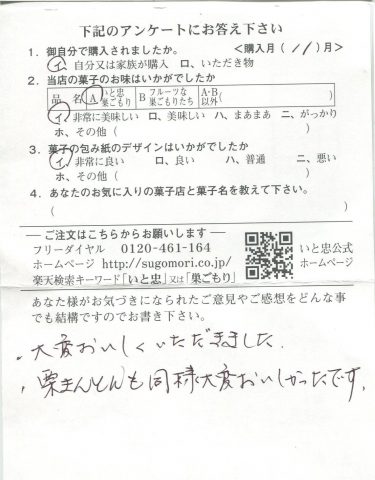 下記のアンケートにお答え下さい
1. 御自分で購入されましたか。 <購入月( 11 )月>
イ、自分又は家族が購入 ロ、いただき物
2. 当店の菓子のお味はいかがでしたか
品 名 A いと忠巣ごもり B フルーツな巣ごもりたち A・B以外( )
イ、非常に美味しい ロ、美味しい ハ、まあまあ ニ、がっかり
ホ、その他( )
3. 菓子の包み紙のデザインはいかがでしたか
イ、非常に良い ロ、良い ハ、普通 ニ、悪い
ホ、その他( )
4. あなたのお気に入りの菓子店と菓子名を教えて下さい。
( )
― ご注文はこちらからお願いします ―
フリーダイヤル 0120-461-164
ホームページ http://sugomori.co.jp/
楽天検索キーワード「いと忠」又は「巣ごもり」
いと忠公式
ホームページ
あなた様がお気づきになられたご意見やご感想をどんな事
でも結構ですのでお書き下さい。
・大変おいしくいただきました.
・栗きんとんも同様大変おいしかったです.